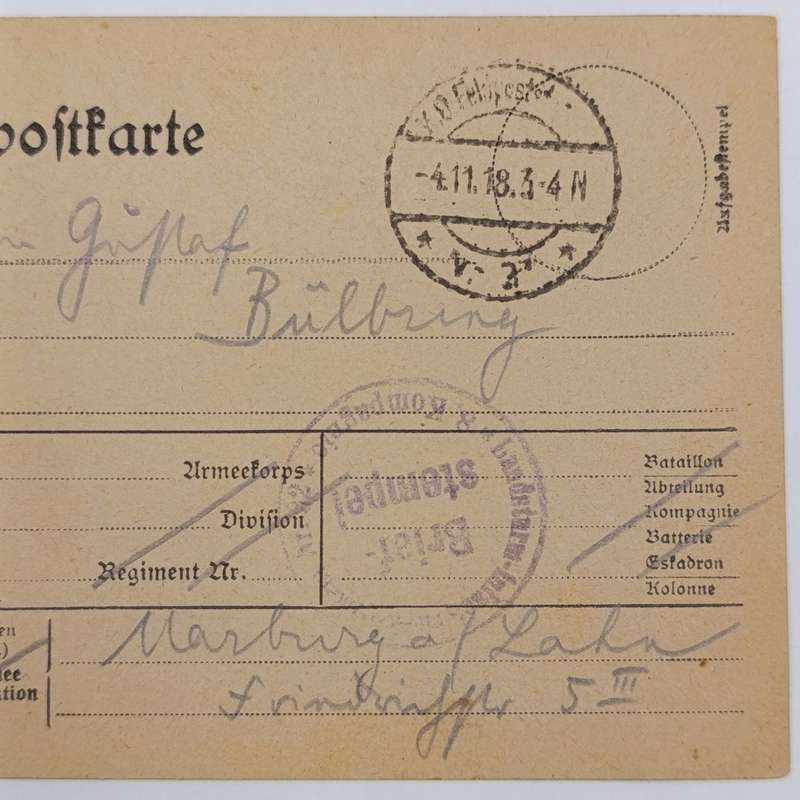 postkarte
Feldpost
-4.11.18.3-4 N
Aufgabestempel
Gustaf
Bülbring
Armeekorps
Division
Regiment Nr.
Bataillon
Abteilung
Kompagnie
Batterie
Eskadron
Kolonne
8. Kompagnie * Landsturm-Inf
Brief-
stempel
Marburg a/Lahn
Friedrichstr 5 III